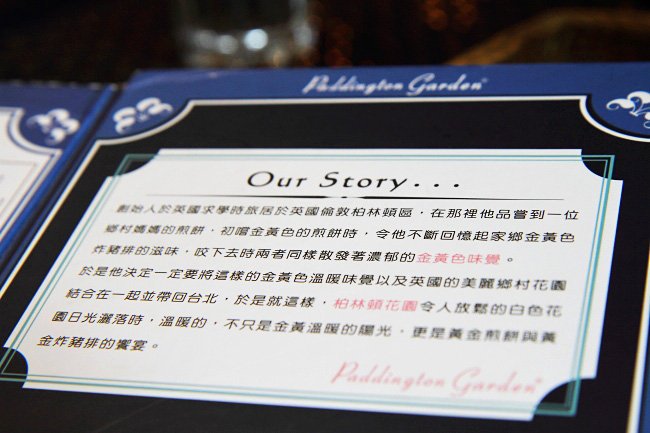 Paddington Garden
Our Story...
創始人於英國求學時旅居於英國倫敦柏林頓區，在那裡他品嘗到一位
鄉村媽媽的煎餅，初嚐金黃色的煎餅時，令他不斷回憶起家鄉金黃色
炸豬排的滋味，咬下去時兩者同樣散發著濃郁的金黃色味覺。
於是他決定一定要將這樣的金黃色溫暖味覺以及英國的美麗鄉村花園
結合在一起並帶回台北，於是就這樣，柏林頓花園令人放鬆的白色花
園日光灑落時，溫暖的，不只是金黃溫暖的陽光，更是黃金煎餅與黃
金炸豬排的饗宴。
Paddington Garden